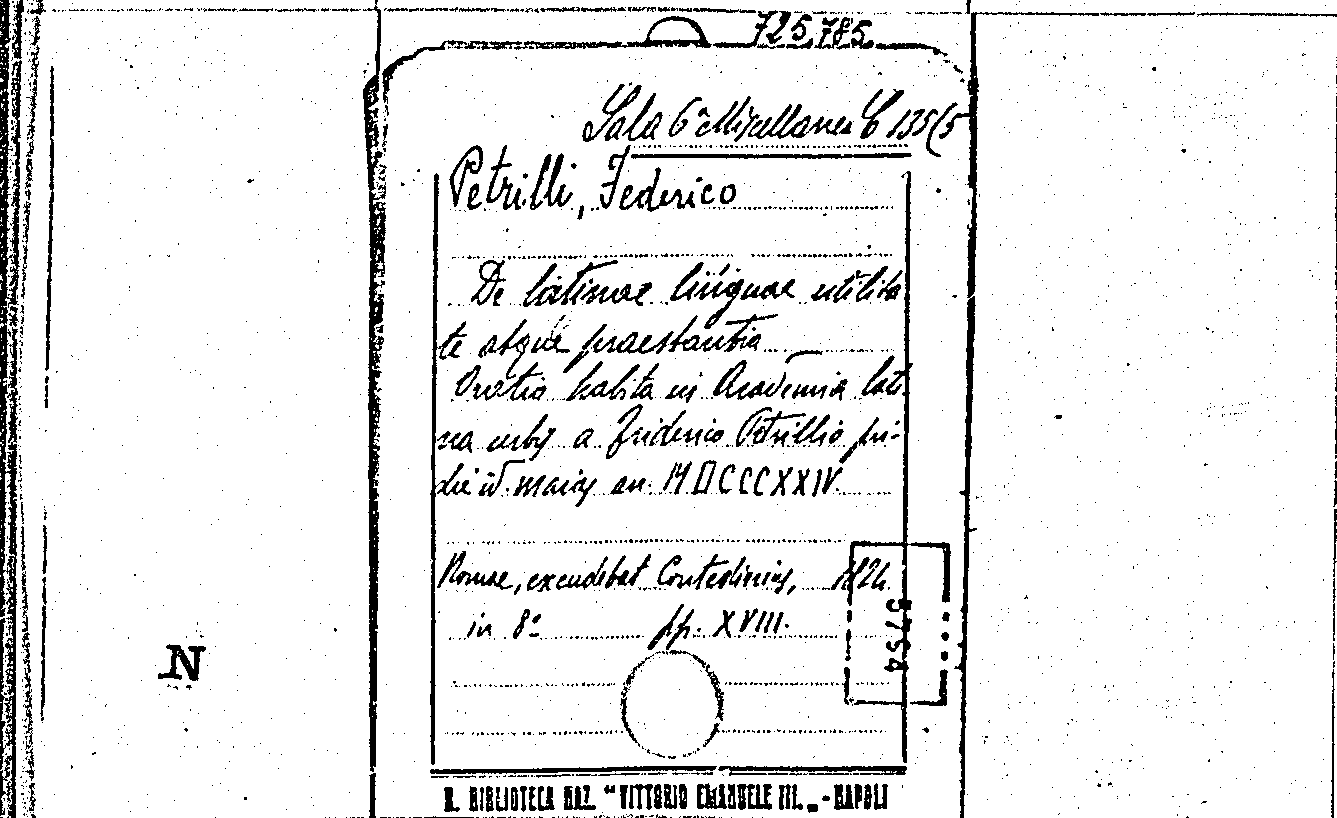 725.785
Sala 6ª Miscellanea C 135(5
Petrilli, Federico
De latinae linguae utilita
te atque praestantia
Oratio habita in Academia lati
na a Friderico Petrillio pri-
die id. maias an. MDCCCXXIV
Romae, excudebat Contedinius, 1824
in 8º pp. XVIII.
5754
N
R. BIBLIOTECA NAZ. "VITTORIO EMANUELE III. „ - NAPOLI